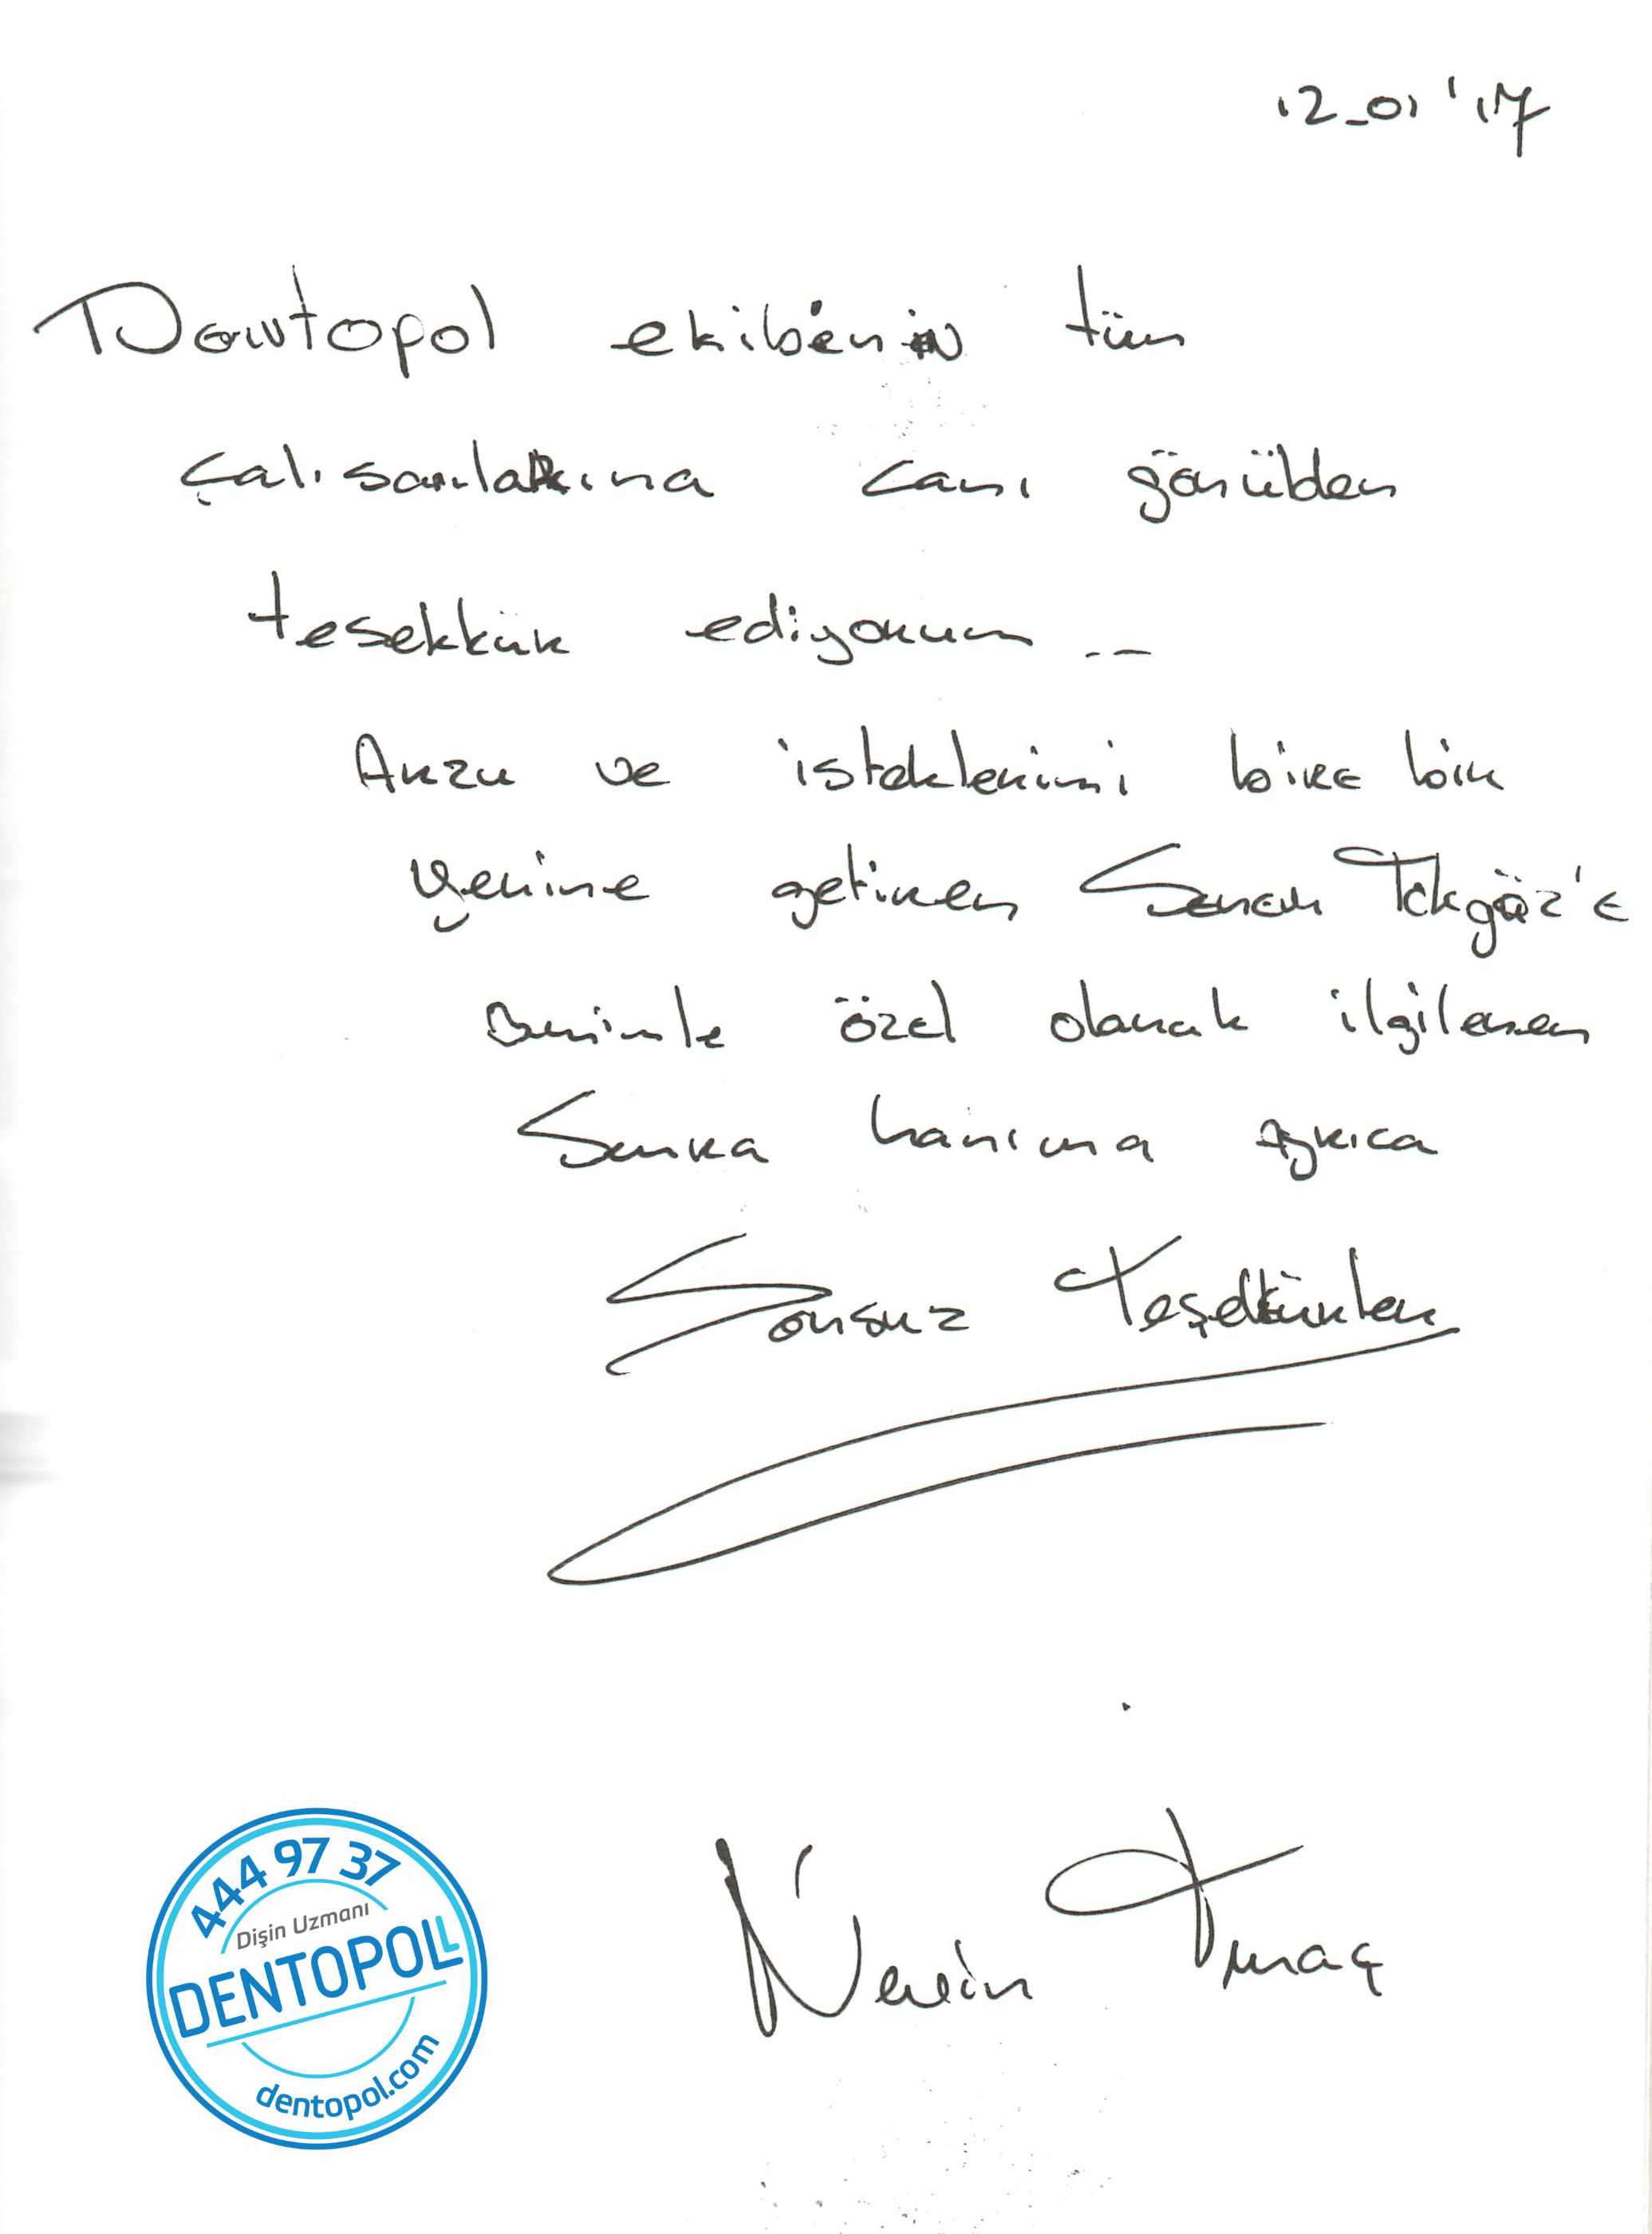 12_01 '17
Dentopol ekibinin tüm
çalısanlarına canı gönülden
tesekkür ediyorum ---
Arzu ve isteklerimi bire bir
yerine getiren Senem Tekgöz'e
Benimle özel olarak ilgilenen
Semra hanıma Ayrıca
Sonsuz Teşekkürler
Nevin
444 97 37
Dişin Uzmanı
DENTOPOLL
dentopol.com